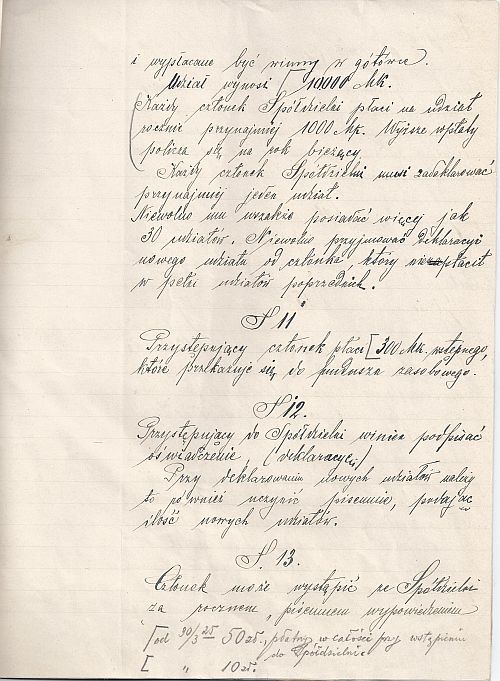 i wypłacane być winny w gótówce.
Udział wynosi [10000 Mk.
(Każdy członek Spółdzielni płaci na udział
rocznie przynajmniej 1000 Mk. Wyższe wpłaty
policza się na rok bieżący.
Każdy członek Spółdzielni musi zadeklarować
przynajmniej jeden udział.
Niewolno mu wszakże posiadać więcej jak
30 udziałów. Niewolno przyjmować deklaracyi
nowego udziału od członka, który niezapłacił
w pełni udziałów poprzednich.
§ 11
Przystępujący członek płaci [300 Mk. wstępnego,
które przekazuje się do funduszu zasobowego.
§ 12.
Przystępujący do Spółdzielni winien podpisać
oświadczenie, (deklaracyę)
Przy deklarowaniu nowych udziałów należy
to również uczynić pisemnie, podając
ilość nowych udziałów.
§. 13.
Członek może wystąpić ze Spółdzielni
za rocznem, pisemnem wypowiedzeniem
[od 30/3 25 50 zł., płatny w całości przy wstąpieniu
do Spółdzielni
[ " 10 zł.